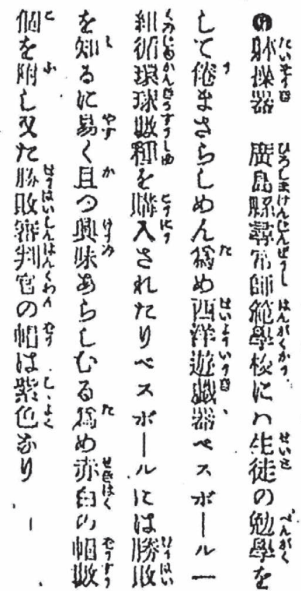 ◉躰操器　廣島縣尋常師範學校にハ生徒の勉學を
して倦まさらしめん爲め西洋遊戯器ベスボール一
組循環球数種を購入されたりベスボールには勝敗
を知るに易く且つ興味あらしむる爲め赤白の帽数
個を附し又た勝敗審判官の帽は紫色なり